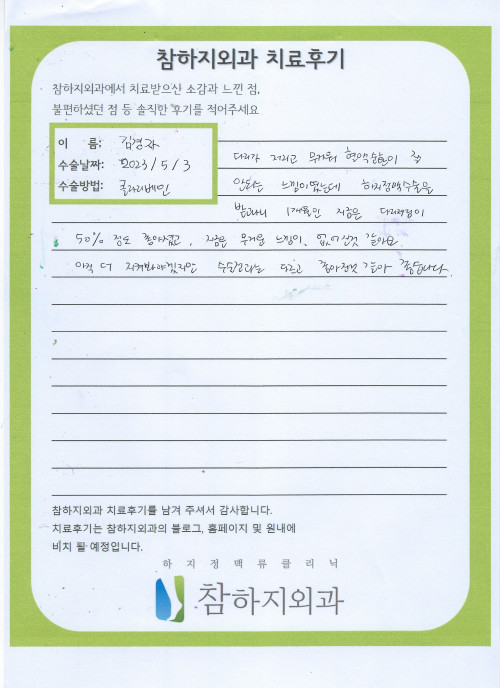 참하지외과 치료후기
참하지외과에서 치료받으신 소감과 느낀 점,
불편하셨던 점 등 솔직한 후기를 적어주세요
이 름: 김경자
수술날짜: 2023/5/3
수술방법: 클라리베인
다리가 저리고 무거워 혈액순환이 잘
안되는 느낌이 있는데 하지정맥수술을
받고나니 1개월인 지금은 다리저림이
50% 정도 좋아졌고, 지금은 무거운 느낌이, 없어진것 같아요
아직 더 지켜봐야겠지만 수술전과는 다르고 좋아진것 같아 좋습니다.
참하지외과 치료후기를 남겨 주셔서 감사합니다.
치료후기는 참하지외과의 블로그, 홈페이지 및 원내에
비치 될 예정입니다.
하지정맥류클리닉
참하지외과